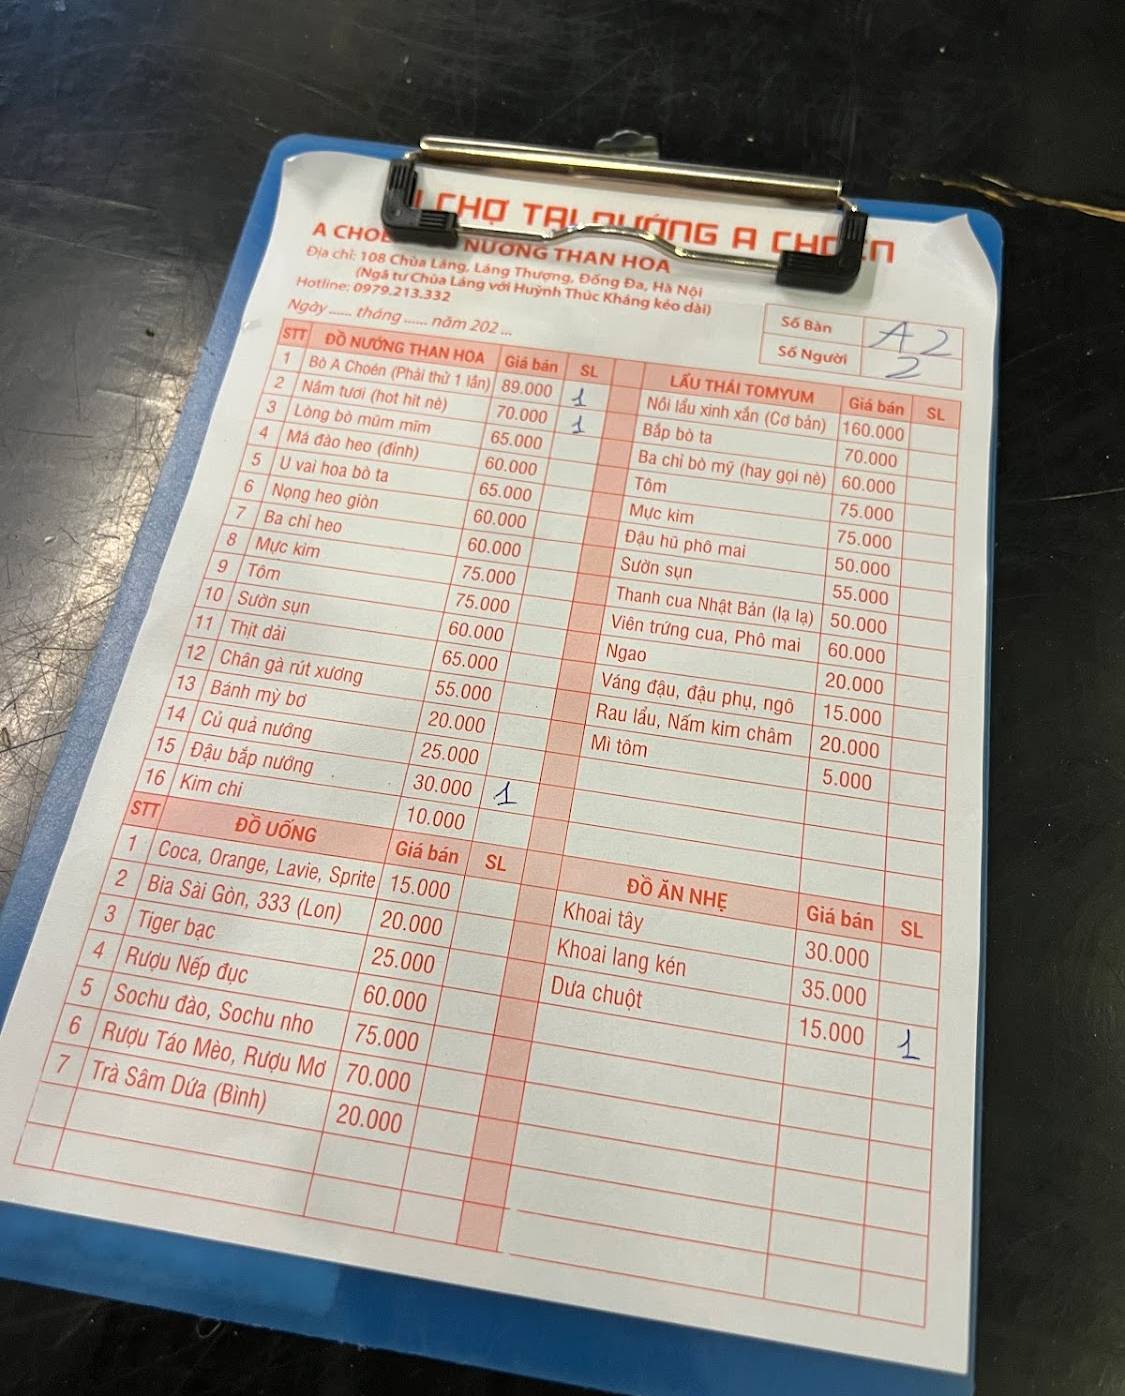 CHỢ TẠI NƯỚNG A
NƯỚNG THAN HOA
Địa chỉ: 108 Chùa Láng, Láng Thượng, Đống Đa, Hà Nội
(Ngã tư Chùa Láng với Huỳnh Thúc Kháng kéo dài)
Hotline: 0979.213.332
Ngày ...... tháng ...... năm 202 ...
Số Bàn A2
Số Người 2
STT ĐỒ NƯỚNG THAN HOA Giá bán SL
1 Bò A Choén (Phải thử 1 lần) 89.000 1
2 Nầm tươi (hot hit nè) 70.000 1
3 Lòng bò mũm mĩm 65.000
4 Má đào heo (đỉnh) 60.000
5 U vai hoa bò ta 65.000
6 Nọng heo giòn 60.000
7 Ba chỉ heo 60.000
8 Mực kim 75.000
9 Tôm 75.000
10 Sườn sụn 60.000
11 Thịt dải 65.000
12 Chân gà rút xương 55.000
13 Bánh mỳ bơ 20.000
14 Củ quả nướng 25.000
15 Đậu bắp nướng 30.000 1
16 Kim chi 10.000
STT ĐỒ UỐNG Giá bán SL
1 Coca, Orange, Lavie, Sprite 15.000
2 Bia Sài Gòn, 333 (Lon) 20.000
3 Tiger bạc 25.000
4 Rượu Nếp đục 60.000
5 Sochu đào, Sochu nho 75.000
6 Rượu Táo Mèo, Rượu Mơ 70.000
7 Trà Sâm Dứa (Bình) 20.000
LẨU THÁI TOMYUM Giá bán SL
Nồi lẩu xinh xắn (Cơ bản) 160.000
Bắp bò ta 70.000
Ba chỉ bò mỹ (hay gọi nè) 60.000
Tôm 75.000
Mực kim 75.000
Đậu hũ phô mai 50.000
Sườn sụn 55.000
Thanh cua Nhật Bản (lạ lạ) 50.000
Viên trứng cua, Phô mai 60.000
Ngao 20.000
Váng đậu, đậu phụ, ngô 15.000
Rau lẩu, Nấm kim châm 20.000
Mì tôm 5.000
ĐỒ ĂN NHẸ Giá bán SL
Khoai tây 30.000
Khoai lang kén 35.000
Dưa chuột 15.000 1